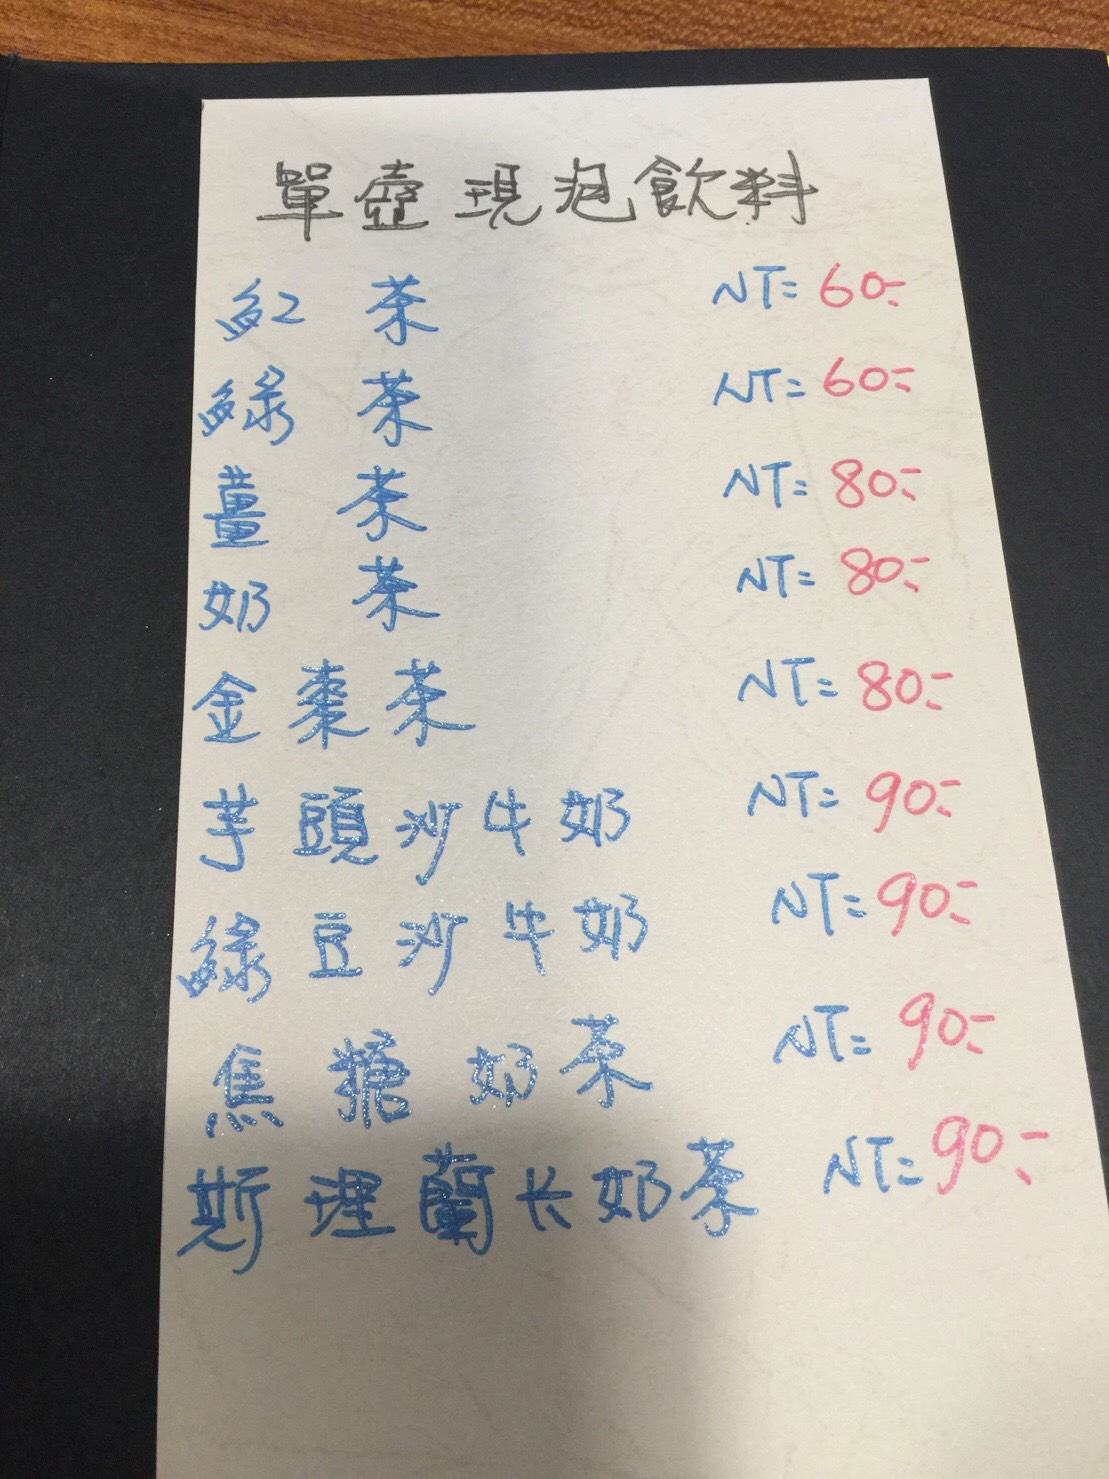 單壺現泡飲料
紅茶 NT= 60:-
綠茶 NT= 60:-
薑茶 NT= 80:-
奶茶 NT= 80:-
金棗茶 NT= 80:-
芋頭沙牛奶 NT= 90:-
綠豆沙牛奶 NT= 90:-
焦糖奶茶 NT= 90:-
斯理蘭卡奶茶 NT= 90:-